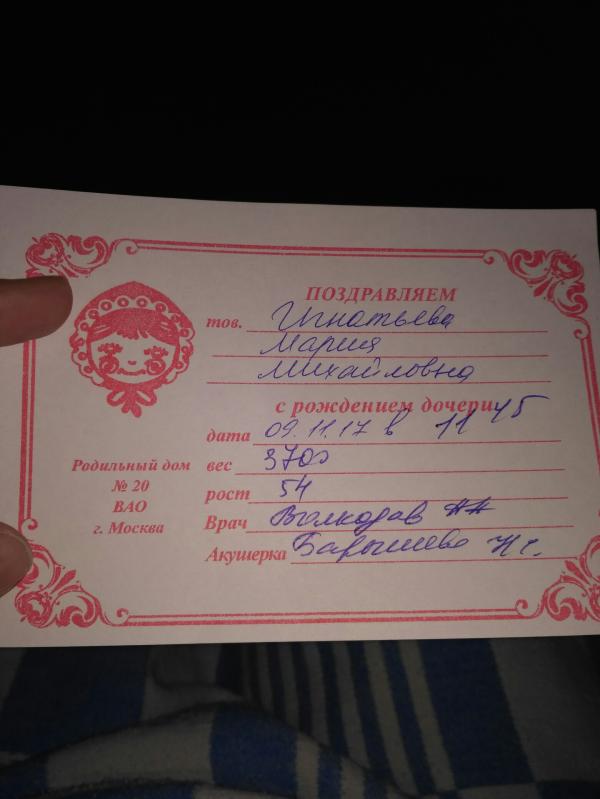 ПОЗДРАВЛЯЕМ
тов. Игнатьева
Мария
Михайловна
с рождением дочери
дата 09.11.17 в 11 45
вес 3700
рост 54
Врач Волкодав
Акушерка Барышева
Родильный дом
№ 20
ВАО
г. Москва